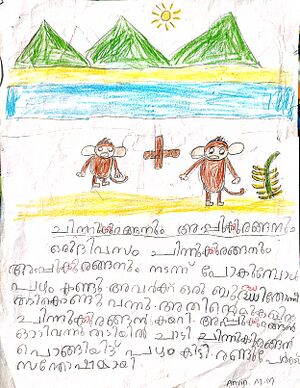 ചിന്നുകുരങ്ങനും അപ്പികുരങ്ങനും
ഒരുദിവസം ചിന്നികുരങ്ങനും
അപ്പികുരങ്ങനും നടന്ന് പോകുമ്പോൾ
പുഴ കണ്ടു അവർക്ക് ഒരു
വന്നു അതിന്റെ
ചിന്നികുരങ്ങൻ കയറി. അപ്പികുരങ്ങൻ
ഓടിവന്ന് ചാടി ചിന്നികുരങ്ങൻ
പൊങ്ങിയിട്ട് പഴം കിട്ടി രണ്ടു പേർക്കും
സന്തോഷമായി.
Amin. M.M